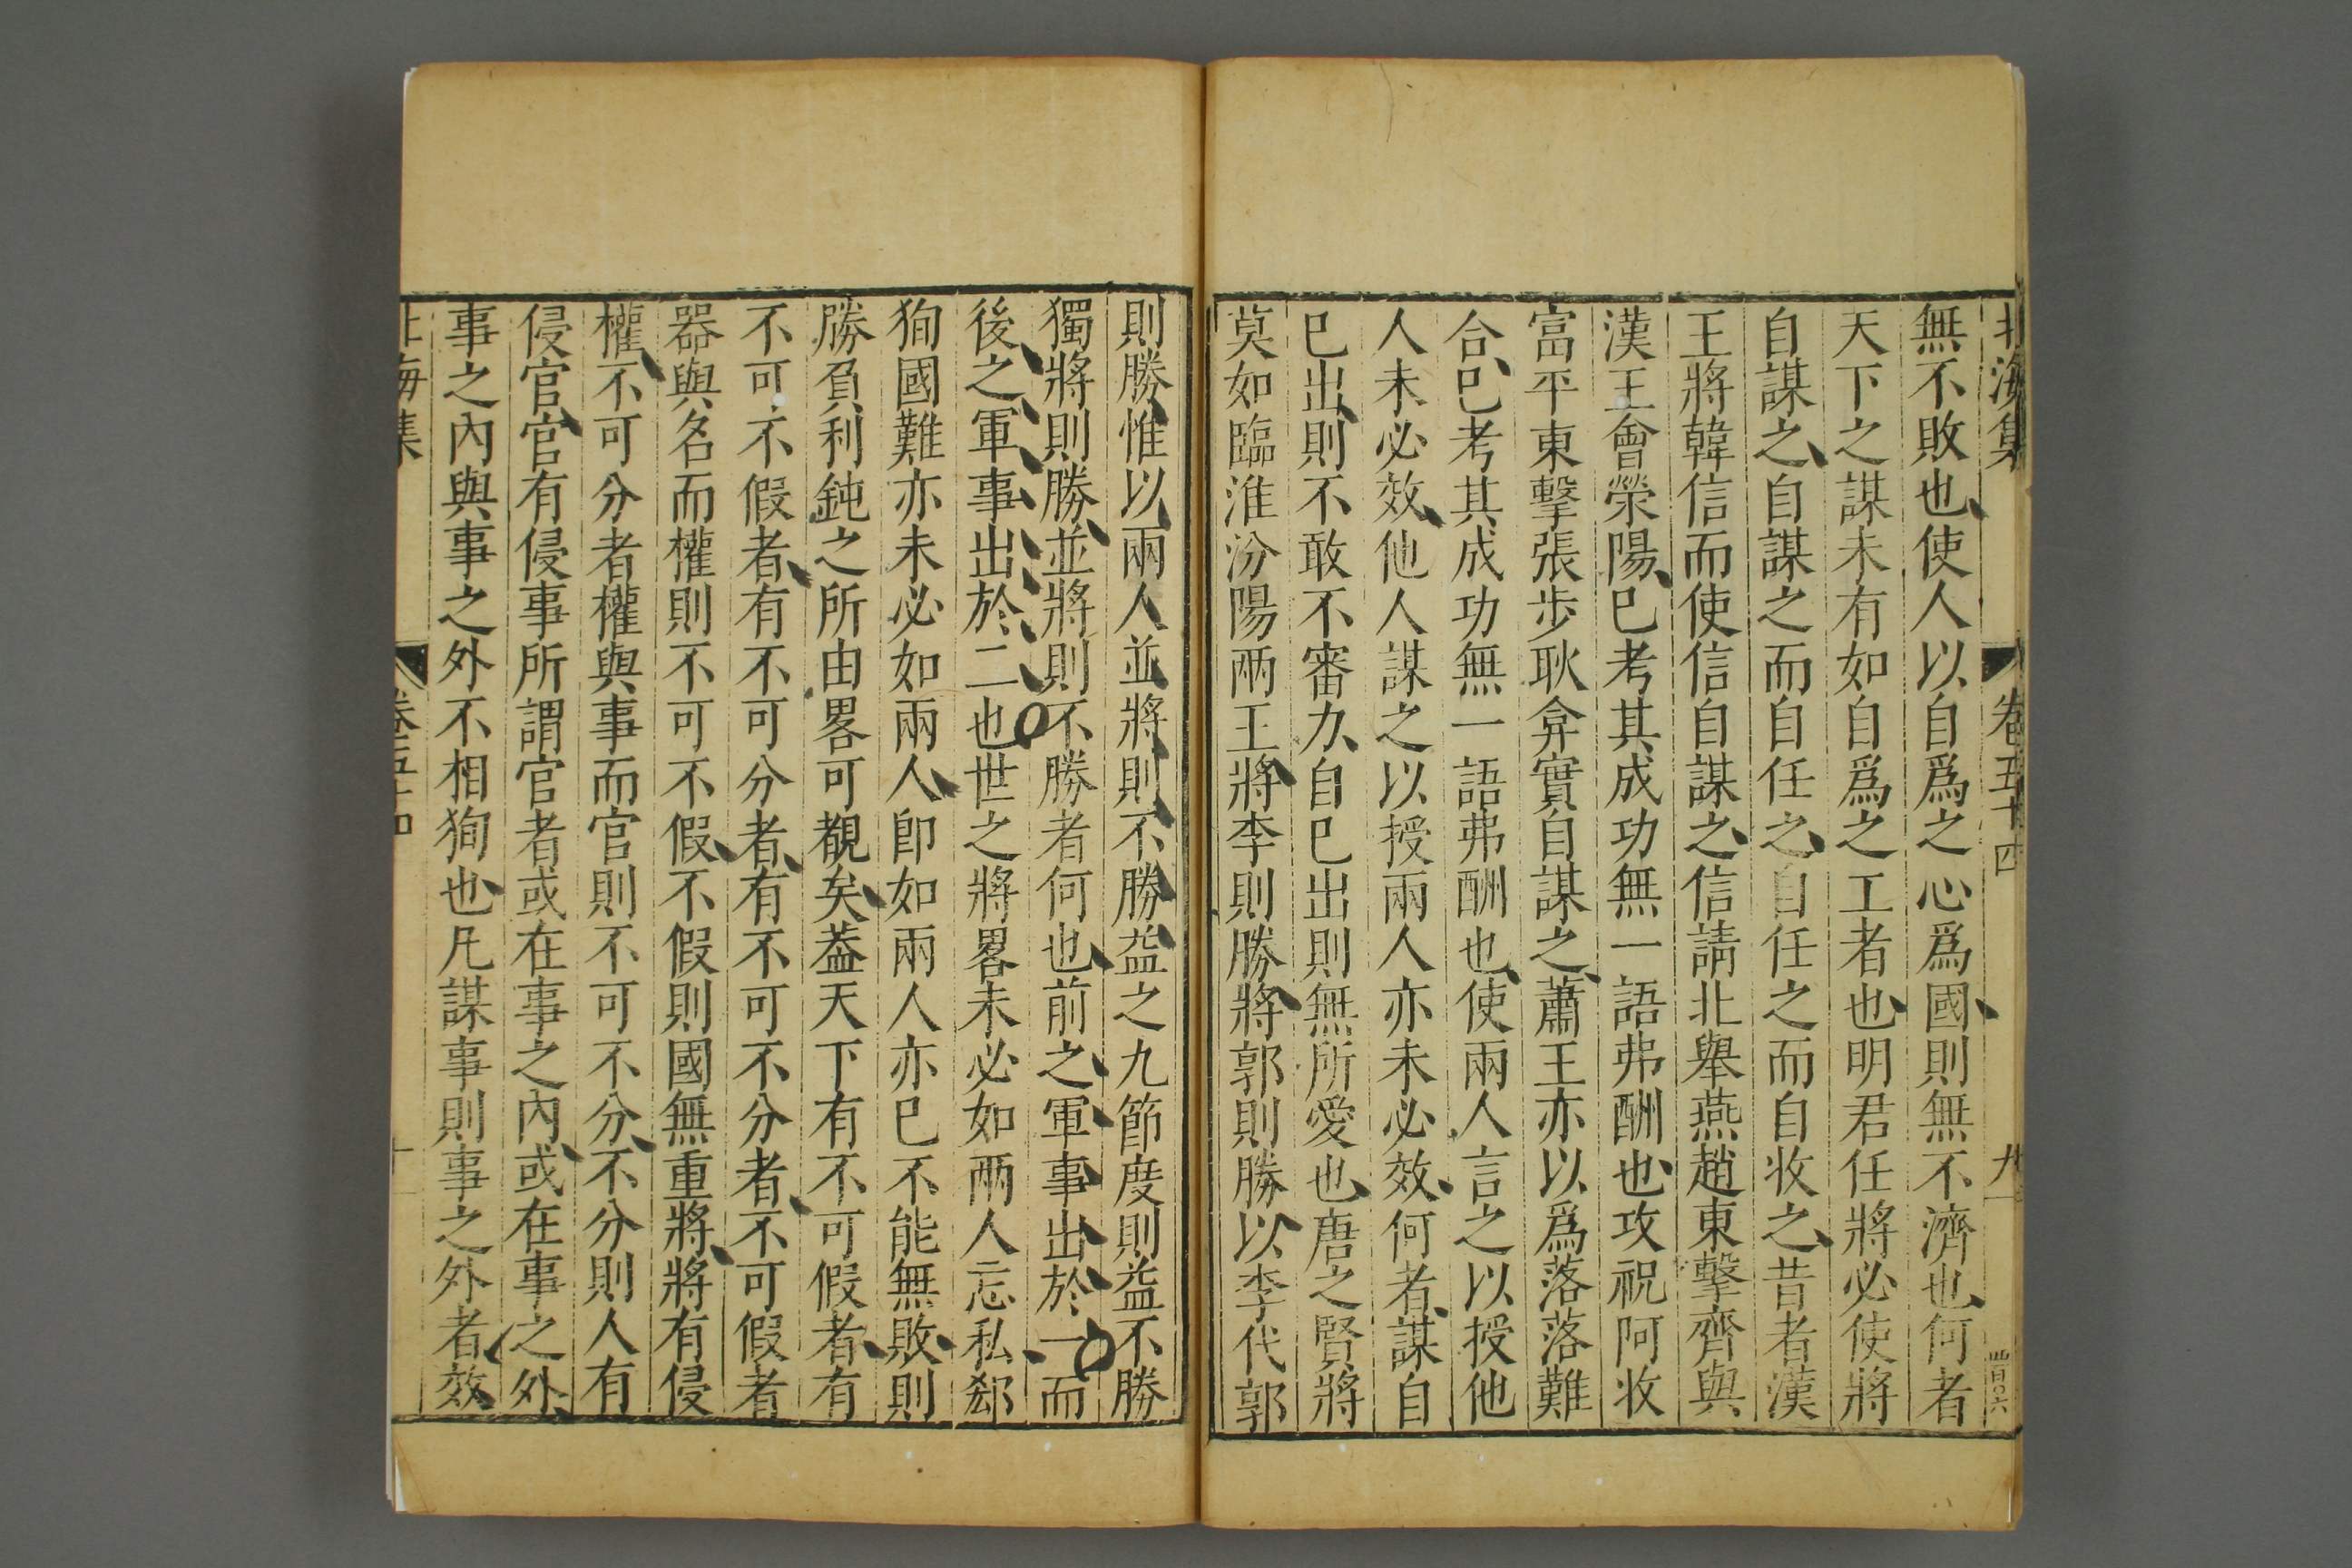 北海集 卷五十四 九 四百〇六
無不敗也使人以自爲之心爲國則無不濟也何者
天下之謀未有如自爲之工者也明君任將必使將
自謀之自謀之而自任之自任之而自收之昔者漢
王將韓信而使信自謀之信請北舉燕趙東擊齊與
漢王會滎陽巳考其成功無一語弗酬也攻祝阿收
富平東擊張步耿弇實自謀之蕭王亦以爲落落難
合巳考其成功無一語弗酬也使兩人言之以授他
人未必效他人謀之以授兩人亦未必效何者謀自
巳出則不敢不審力自巳出則無所愛也唐之賢將
莫如臨淮汾陽兩王將李則勝將郭則勝以李代郭
則勝惟以兩人並將則不勝益之九節度則益不勝
獨將則勝並將則不勝者何也前之軍事出於一而
後之軍事出於二也世之將畧未必如兩人忘私郄
狥國難亦未必如兩人卽如兩人亦巳不能無敗則
勝負利鈍之所由畧可覩矣葢天下有不可假者有
不可不假者有不可分者有不可不分者不可假者
器與名而權則不可不假不假則國無重將將有侵
權不可分者權與事而官則不可不分不分則人有
侵官官有侵事所謂官者或在事之內或在事之外
事之內與事之外不相狥也凡謀事則事之外者效
北海集 卷五十四 十